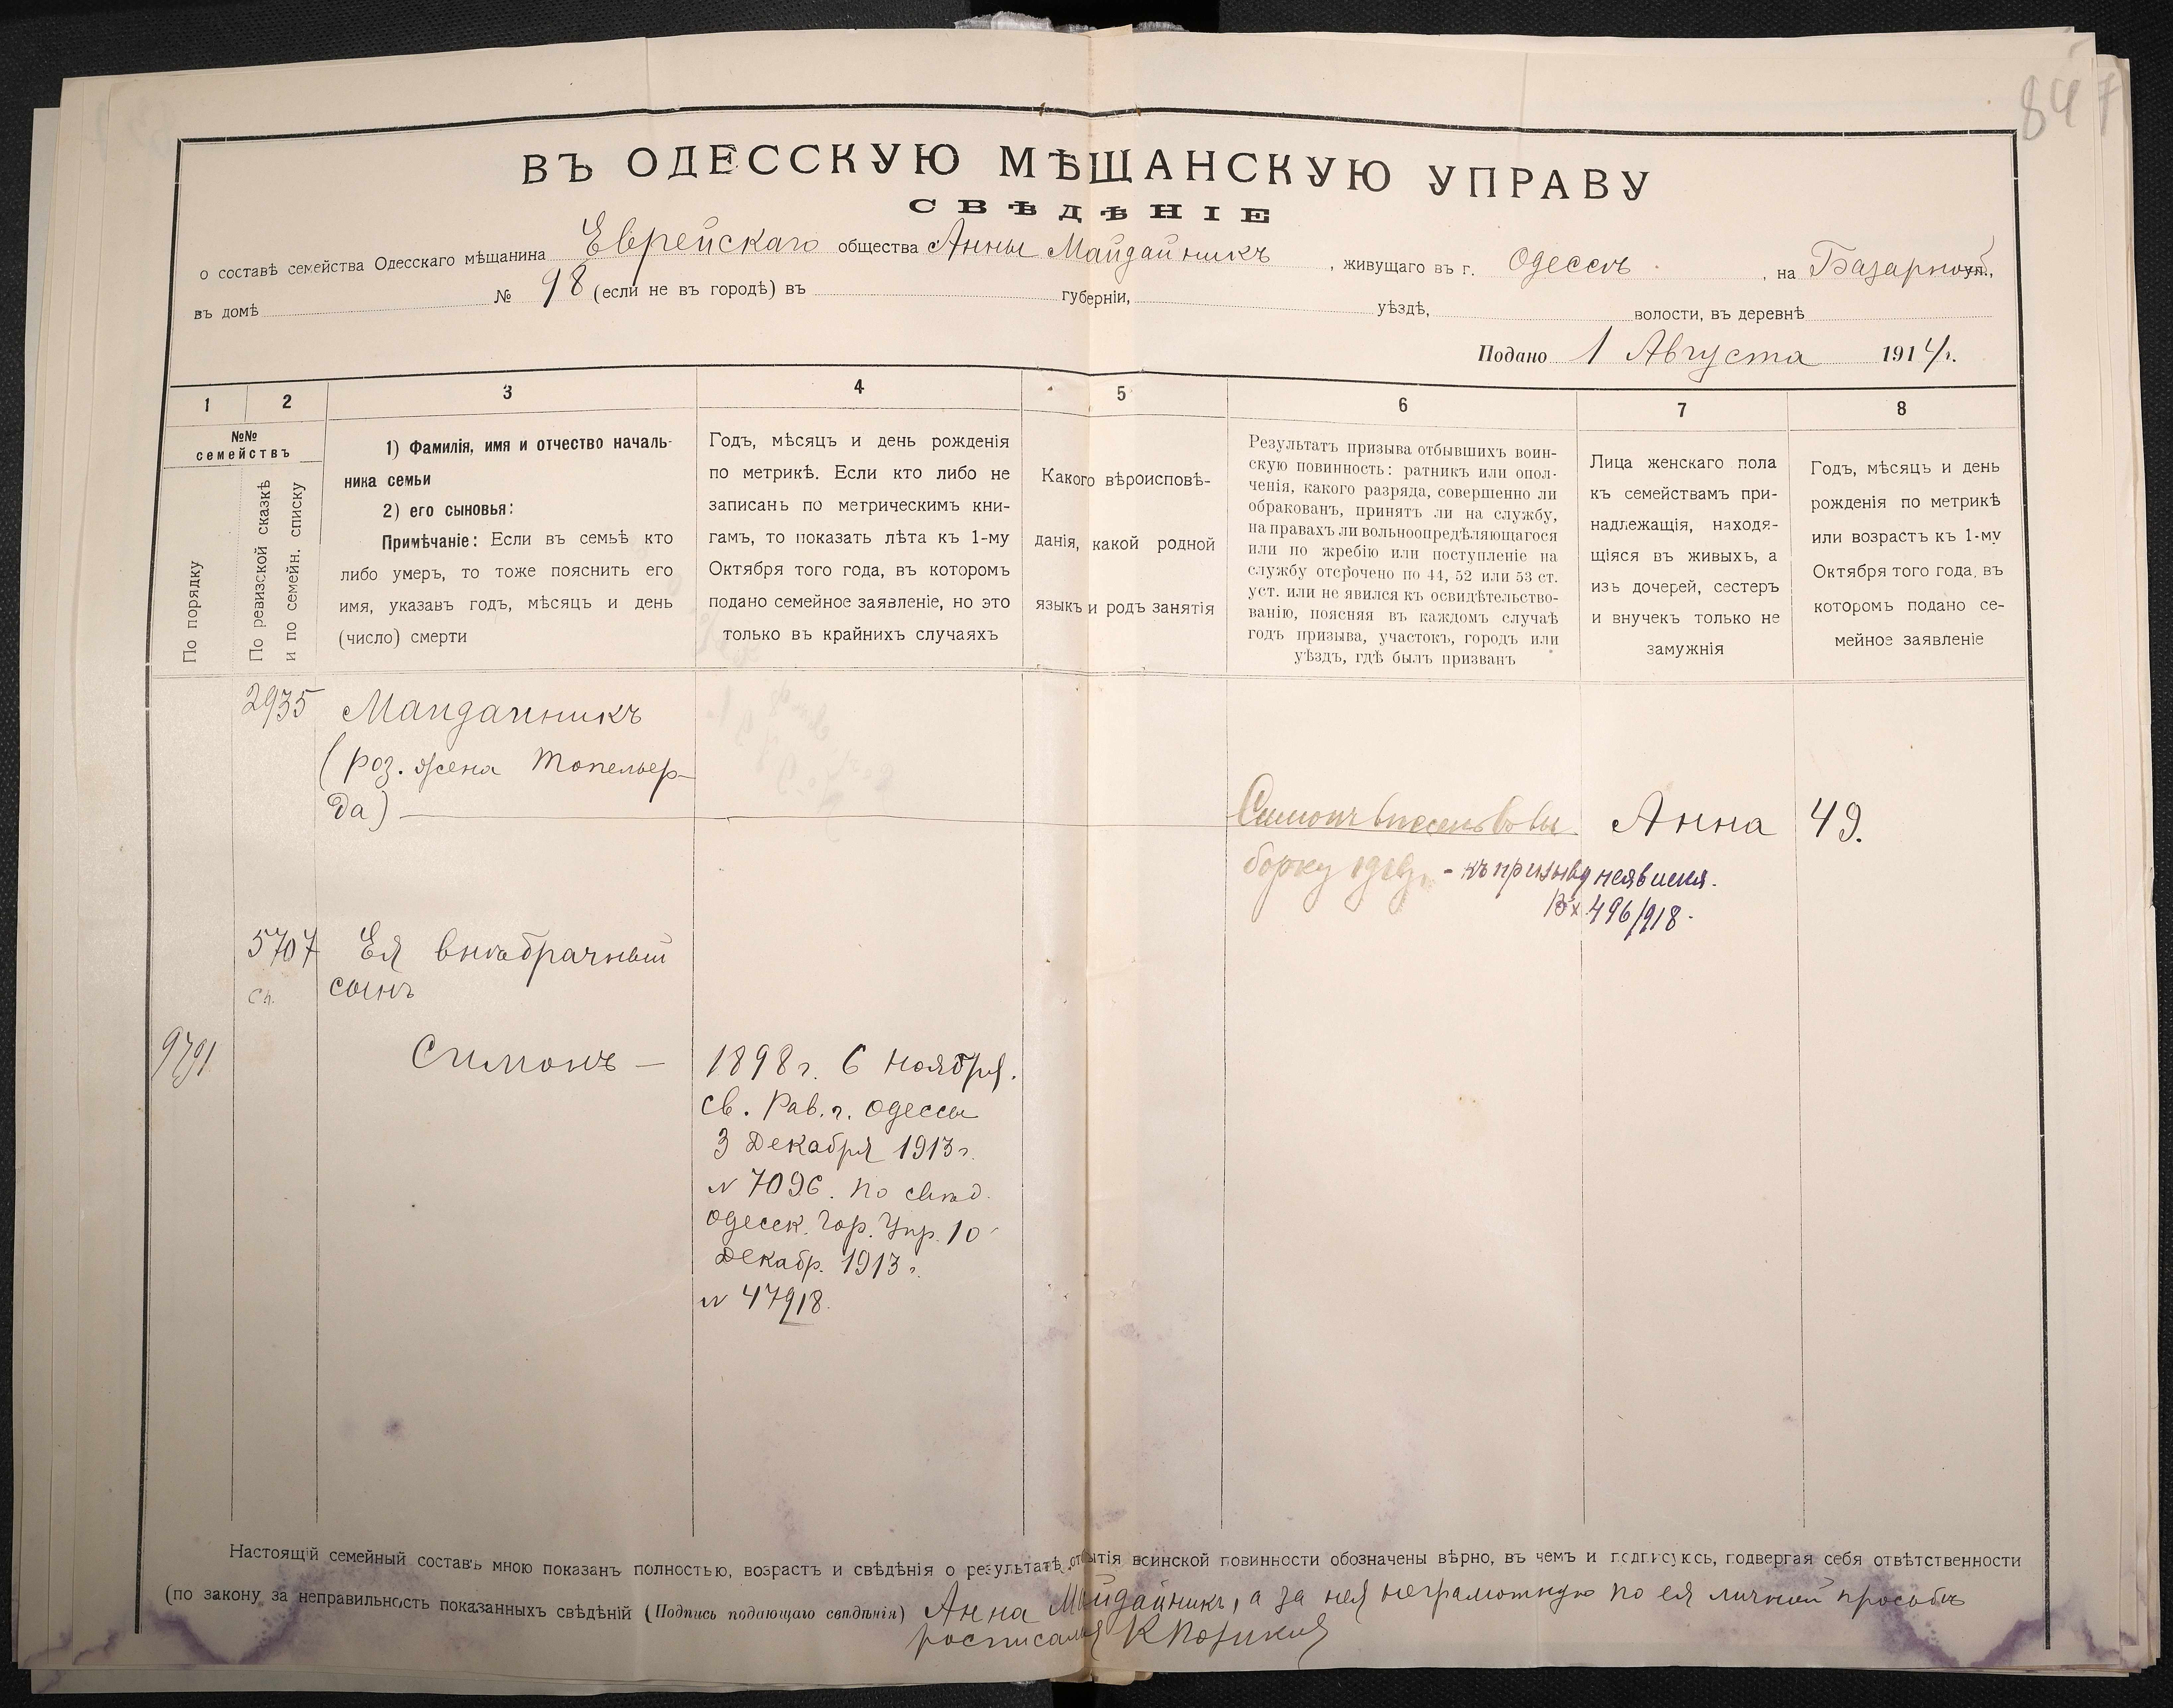 847
ВЪ ОДЕССКУЮ МѢЩАНСКУЮ УПРАВУ
СВѢДѢНІЕ
о составѣ семейства Одесскаго мѣщанина Еврейскаго общества Анны Майданникъ, живущаго въ г. Одессѣ, на Базарной ул.,
въ домѣ № 98 (если не въ городѣ) въ губерніи, уѣздѣ, волости, въ деревнѣ
Подано 1 Августа 1914 г.
1 2 3 4 5 6 7 8
№№
семействъ
По порядку
По ревизской сказкѣ
и по семейн. списку
1) Фамилія, имя и отчество началь-
ника семьи
2) его сыновья:
Примѣчаніе: Если въ семьѣ кто
либо умеръ, то тоже пояснить его
имя, указавъ годъ, мѣсяцъ и день
(число) смерти
Годъ, мѣсяцъ и день рожденія
по метрикѣ. Если кто либо не
записанъ по метрическимъ кни-
гамъ, то показать лѣта къ 1-му
Октября того года, въ которомъ
подано семейное заявленіе, но это
только въ крайнихъ случаяхъ
Какого вѣроисповѣ-
данія, какой родной
языкъ и родъ занятія
Результатъ призыва отбывшихъ воин-
скую повинность: ратникъ или опол-
ченія, какого разряда, совершенно ли
обракованъ, принятъ ли на службу,
на правахъ ли вольноопредѣляющагося
или по жребію или поступленіе на
службу отсрочено по 44, 52 или 53 ст.
уст. или не явился къ освидѣтельство-
ванію, поясняя въ каждомъ случаѣ
годъ призыва, участокъ, городъ или
уѣздъ, гдѣ былъ призванъ
Лица женскаго пола
къ семействамъ при-
надлежащія, находя-
щіяся въ живыхъ, а
изъ дочерей, сестеръ
и внучекъ только не
замужнія
Годъ, мѣсяцъ и день
рожденія по метрикѣ
или возрастъ къ 1-му
Октября того года, въ
которомъ подано се-
мейное заявленіе
2935 Майданникъ
(роз. жена Топельбер-
да)
Симонъ внесенъ въ вы
Анна 49.
борку - къ призыву не явился.
Вх. 496/918.
5707 Ея внѣбрачный
Сп. сынъ
9791 Симонъ — 1898 г. 6 Ноября.
Св. Рав. г. Одессы
3 Декабря 1913 г.
№ 7096. По свид.
Одесск. Гор. Упр. 10
Декабр. 1913 г.
№ 47918.
Настоящій семейный составъ мною показанъ полностью, возрастъ и свѣдѣнія о результатѣ отбытія воинской повинности обозначены вѣрно, въ чемъ и подписуюсь, подвергая себя отвѣтственности
(по закону за неправильность показанныхъ свѣдѣній (Подпись подающаго свѣдѣнія) Анна Майданникъ, а за нея неграмотную по ея личной просьбѣ
росписался